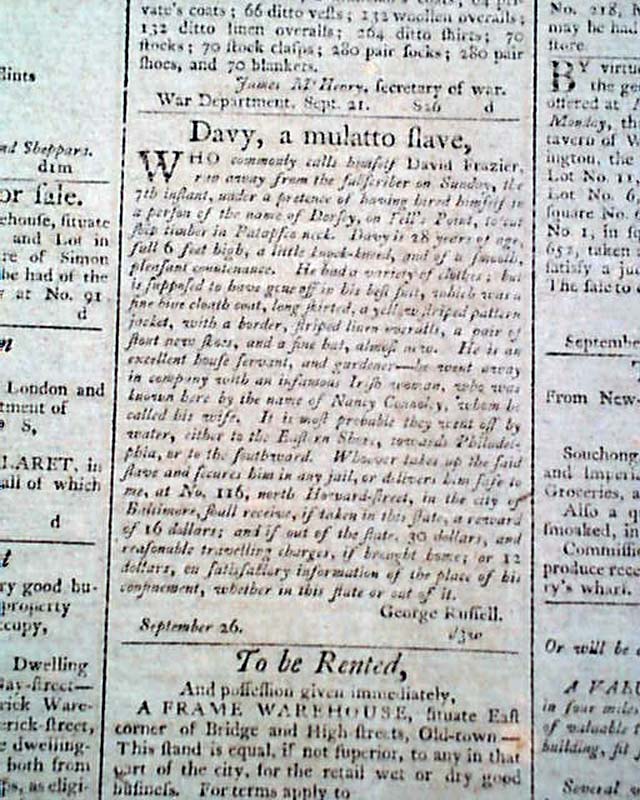 flints
nd Sheppard.
d1m
or sale.
ehouse, situate
and Lot in
re of Simon
be had of the
at No. 91
d
London and
tment of
S,
LARET, in
all of which
d
ry good bu-
property
ccupy,
Dwelling
Gay-street—
rick Ware-
erick-street,
e dwelling-
both from
as eligi-
vate's coats; 66 ditto vests; 132 woollen overalls;
132 ditto linen overalls; 264 ditto shirts; 70
stocks; 70 stock clasps; 280 pair socks; 280 pair
shoes, and 70 blankets.
James McHenry, secretary of war.
War Department, Sept. 21. S26 d
Davy, a mulatto slave,
WHO commonly calls himself David Frazier,
ran away from the subscriber on Sunday, the
7th instant, under a pretence of having hired himself to
a person of the name of Dorsey, on Fell's Point, to cut
ship timber in Patapsco neck. Davy is 28 years of age,
full 6 feet high, a little knock-kneed, and of a smooth,
pleasant countenance. He had a variety of clothes; but
is supposed to have gone off in his best suit, which was a
fine blue cloath coat, long skirted, a yellow striped pattern
jacket, with a border, striped linen overalls, a pair of
stout new shoes, and a fine hat, almost new. He is an
excellent house servant, and gardener—he went away
in company with an infamous Irish woman, who was
known here by the name of Nancy Connoly, whom he
called his wife. It is most probable they went off by
water, either to the Eastern Shore, towards Philadel-
phia, or to the southward. Whoever takes up the said
slave and secures him in any jail, or delivers him safe to
me, at No. 116, north Howard-street, in the city of
Baltimore, shall receive, if taken in this state, a reward
of 16 dollars; and if out of the state, 30 dollars, and
reasonable travelling charges, if brought home; or 12
dollars, on satisfactory information of the place of his
confinement, whether in this state or out of it.
George Russell.
September 26.
To be Rented,
And possession given immediately,
A FRAME WAREHOUSE, situate East
corner of Bridge and High-streets, Old-town—
This stand is equal, if not superior, to any in that
part of the city, for the retail wet or dry good
business. For terms apply to
No. 218, M
may be had
store.
BY virtue
the ge
offered at
Monday, th
tavern of W
ington, the
Lot No. 11,
Lot No. 6,
square No.
No. 1, in sq
652, taken
satisfy a ju
The sale to
September
From New-
Souchong
and Imperi
Groceries, a
Also a qu
smoaked, in
Commissi
produce rece
ry's wharf.
Or will be
A VALU
in four miles
of valuable
building, fit
Several